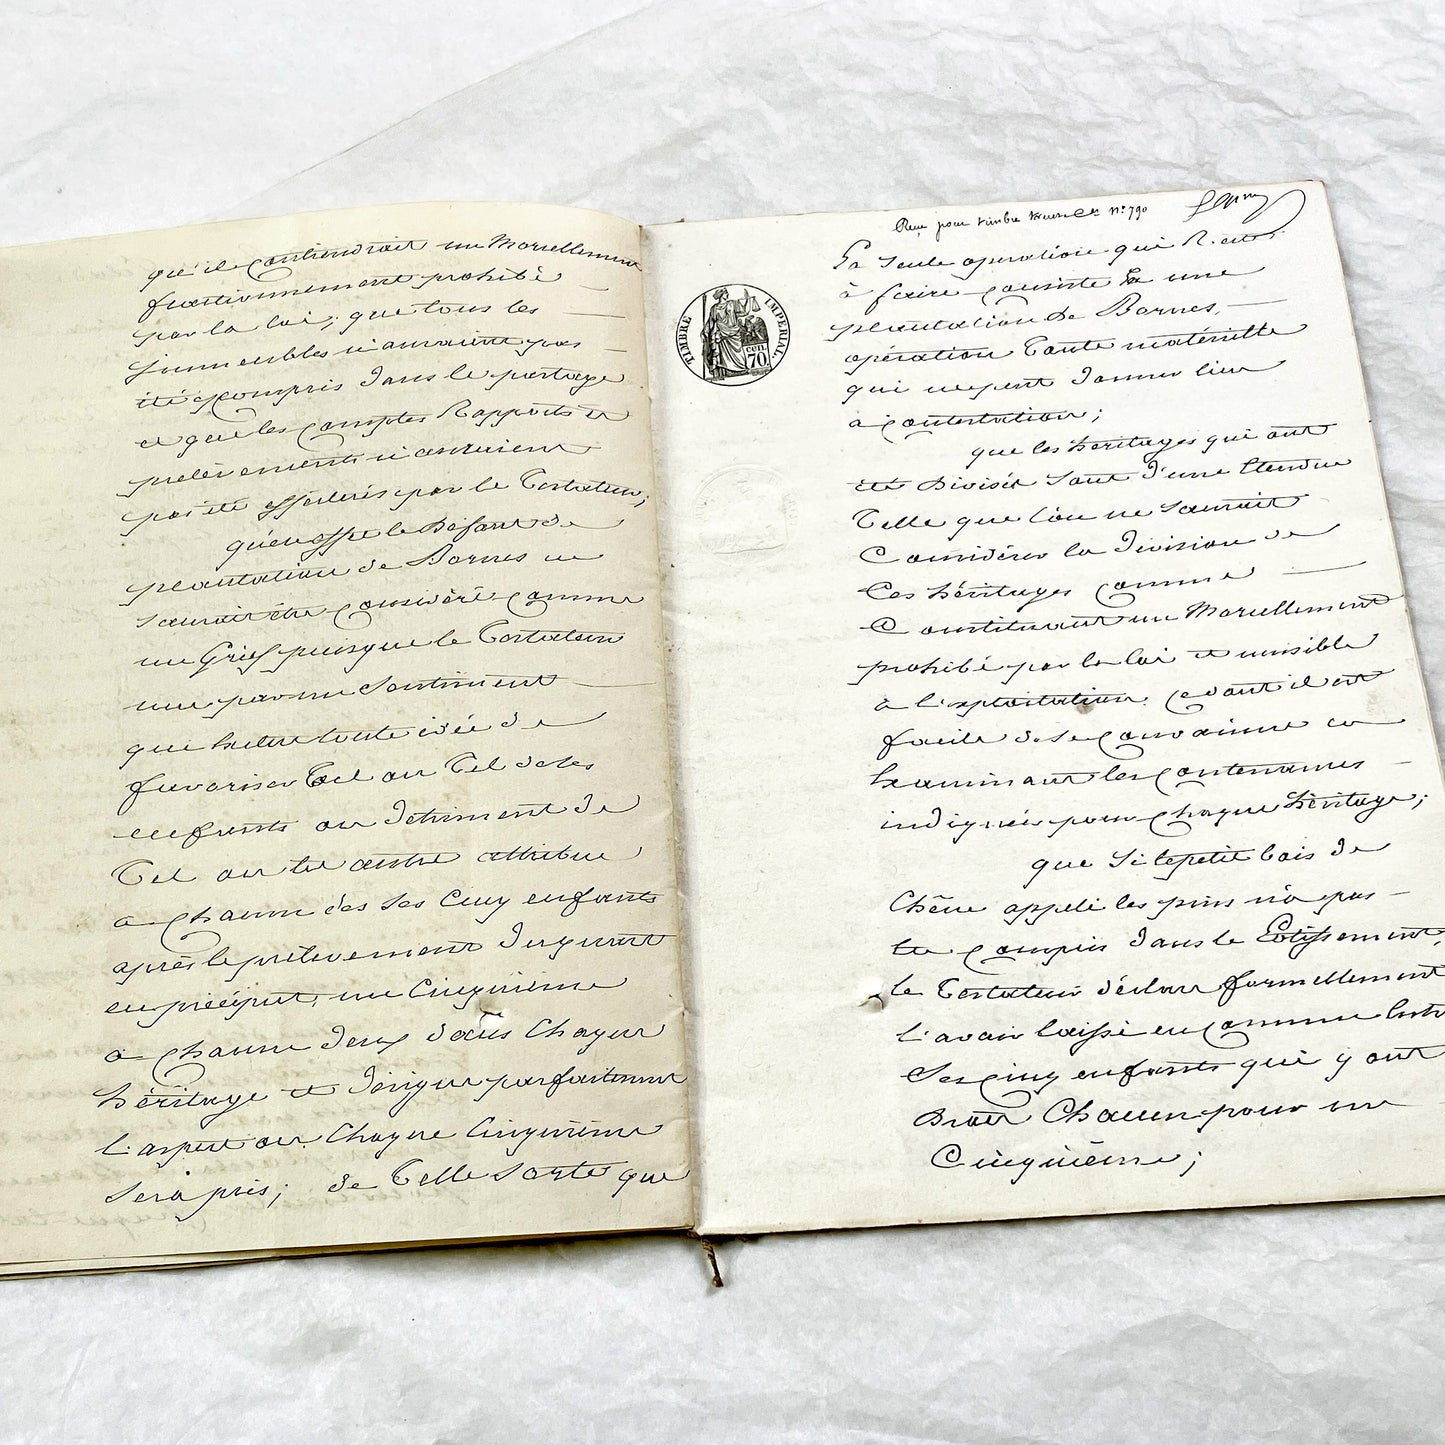 qu'il contiendrait un Morcellement
fractionnement prohibé
par la loi; que tous les
immeubles n'auraient pas
été compris dans le partage
et que les comptes Rapports et
prélèvements n'auraient
pas été effectués par le Testateur;
qu'en effet le Défaut de
plantation de Bornes ne
saurait être considéré comme
un Grief puisque le Testateur
mu par un Sentiment
que hetere toute idée de
favoriser Tel ou Tel de ses
enfants au détriment de
Tel ou tel autre attribue
a chacun des ses Cinq enfants
après le prélèvement Du quart
en préciput, un Cinquième
a chacun deux dans Chaque
héritage et désigne parfaitement
l'aspect ou Chaque Cinquième
sera pris; de Telle sorte que
Reçu pour timbre N° 790
La seule opération qui Reste
à faire consiste En une
plantation de Bornes,
opération Toute matérielle
qui ne peut donner lieu
a contestation;
que les héritages qui ont
été Divisés Sont d'une Etendue
Telle que l'on ne saurait
Considérer la Division de
Ces héritages comme
Constituant un Morcellement
prohibé par la loi et nuisible
à l'exploitation. Ce dont il est
facile de se convaincre en
Examinant les contenances
indiquées pour chaque héritage;
que si le petit bois de
Chêne appelé les pins n'a pas
été compris dans le Lotissement,
le Testateur déclare formellement
l'avoir laissé en commun Entre
Ses cinq enfants qui y ont
Droit Chacun pour un
Cinquième;
TIMBRE IMPERIAL.
70 cen.